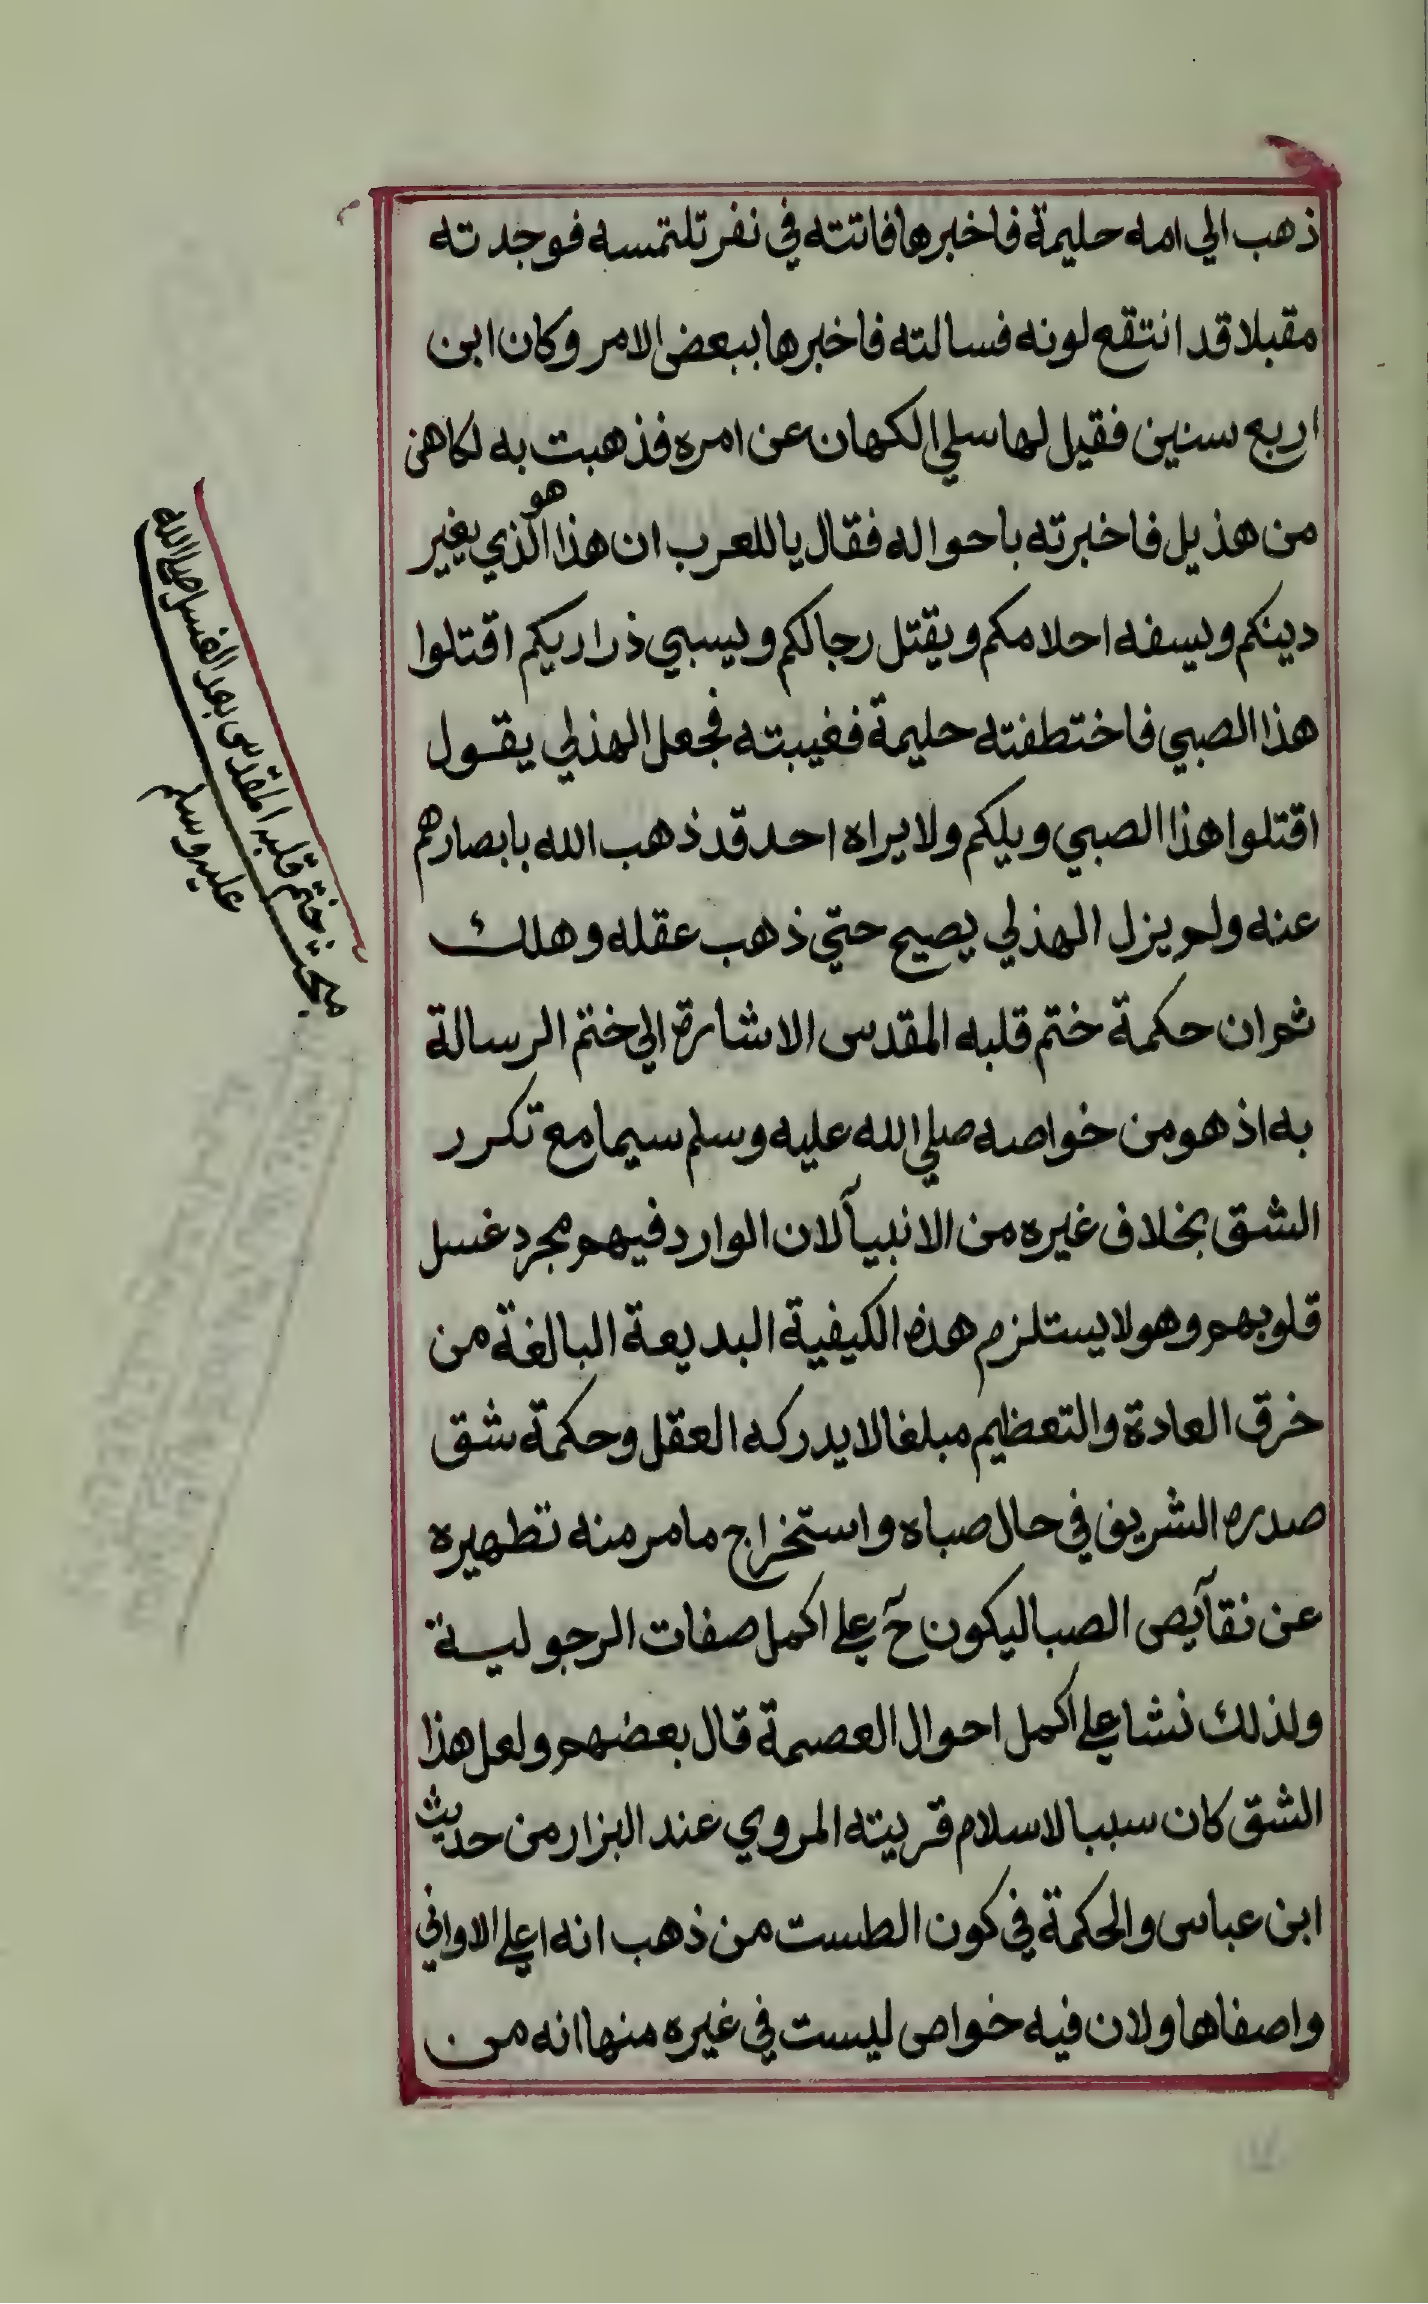 ذهب الي امه حليمة فاخبرها فاتته في نفر تلتمسه فوجدته
مقبلا قد انتقع لونه فسالته فاخبرها ببعض الامر وكان ابن
اربع سنين فقيل لها سلي الكهان عن امره فذهبت به لكاهن
من هذيل فاخبرته باحواله فقال ياللعرب ان هذا هو الذي يغير
دينكم ويسفه احلامكم ويقتل رجالكم ويسبي ذراريكم اقتلوا
هذا الصبي فاختطفته حليمة فغيبته فجعل الهذلي يقول
اقتلوا هذا الصبي ويلكم ولا يراه احد قد ذهب الله بابصارهم
عنه ولم يزل الهذلي يصيح حتي ذهب عقله وهلك
ثم ان حكمة ختم قلبه المقدس الاشارة الي ختم الرسالة
به اذ هو من خواصه صلي الله عليه وسلم سيما مع تكرر
الشق بخلاف غيره من الانبيآ لان الوارد فيهم مجرد غسل
قلوبهم وهو لا يستلزم هذه الكيفية البديعة البالغة من
خرق العادة والتعظيم مبلغا لا يدركه العقل وحكمة شق
صدره الشريف في حال صباه واستخراج ما مر منه تطهيره
عن نقآيص الصبا ليكون ح علي اكمل صفات الرجولية
ولذلك نشا علي اكمل احوال العصمة قال بعضهم ولعل هذا
الشق كان سببا لاسلام قرينه المروي عند البزار من حديث
ابن عباس والحكمة في كون الطست من ذهب انه اعلي الاواني
واصفاها ولان فيه خواص ليست في غيره منها انه من
مبحث ختم قلبه المقدس بعد الغسل صلي الله
عليه وسلم